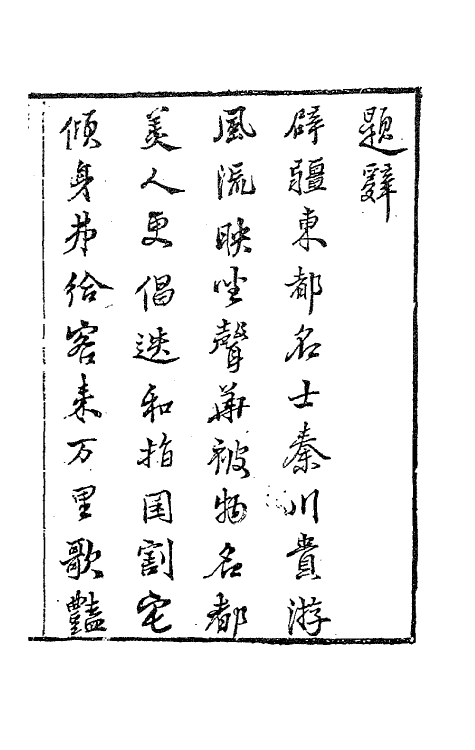 題辭
辟疆東都名士秦川貴游
風流映坐聲華被物名都
美人更倡迭和指囷割宅
傾身莽給客來万里歌豔